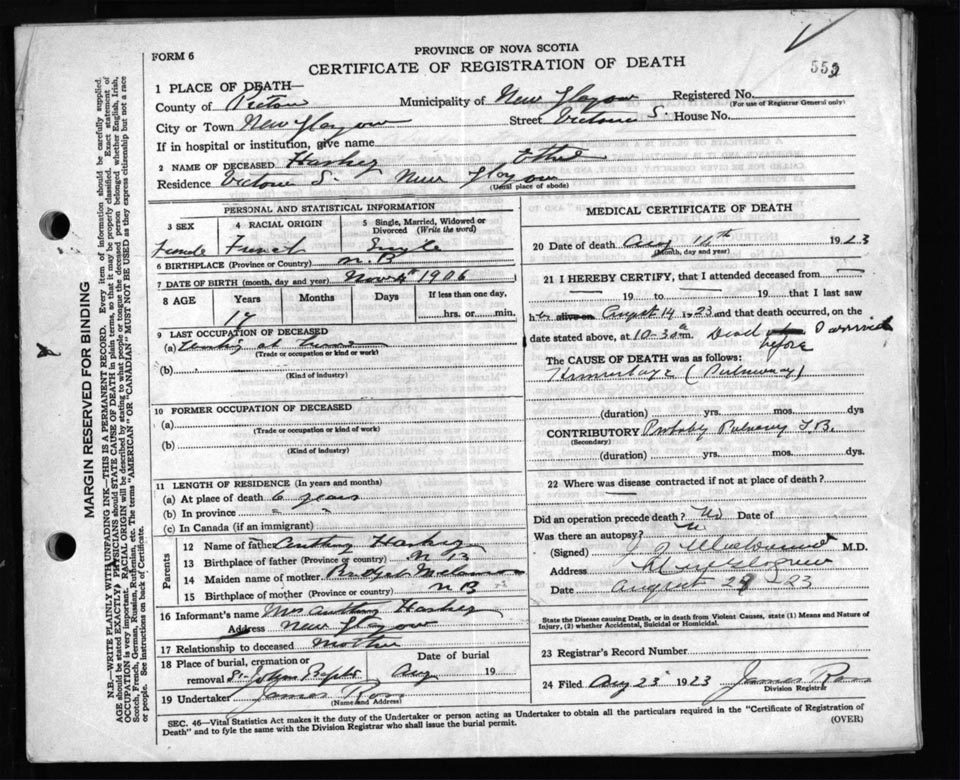 PROVINCE OF NOVA SCOTIA
FORM 6
CERTIFICATE OF REGISTRATION OF DEATH
1 PLACE OF DEATH—
County of Pictou Municipality of New Glasgow Registered No.
(For use of Registrar General only)
City or Town New Glasgow Street Victoria S. House No.
If in hospital or institution, give name
2 NAME OF DECEASED Haskey Ethel
Residence Victoria S. New Glasgow
(Usual place of abode)
PERSONAL AND STATISTICAL INFORMATION
3 SEX 4 RACIAL ORIGIN 5 Single, Married, Widowed or Divorced (Write the word)
Female French Single
6 BIRTHPLACE (Province or Country) N.B
7 DATE OF BIRTH (month, day and year) Nov 4th 1906
8 AGE Years Months Days If less than one day,
17 hrs. or min.
9 LAST OCCUPATION OF DECEASED
(a) at home
(Trade or occupation or kind of work)
(b)
(Kind of industry)
10 FORMER OCCUPATION OF DECEASED
(a)
(Trade or occupation or kind of work)
(b)
(Kind of industry)
11 LENGTH OF RESIDENCE (In years and months)
(a) At place of death 6 years
(b) In province " "
(c) In Canada (if an immigrant)
Parents
12 Name of father Anthony Haskey
13 Birthplace of father (Province or country) N B
14 Maiden name of mother Bridget
15 Birthplace of mother (Province or country) N B
16 Informant's name Mrs Anthony Haskey
Address New Glasgow
17 Relationship to deceased Mother
18 Place of burial, cremation or removal St John Baptis Date of burial Aug 19
19 Undertaker James Ross
(Name and Address)
MEDICAL CERTIFICATE OF DEATH
20 Date of death Aug 14th 1923
(Month, day and year)
21 I HEREBY CERTIFY, that I attended deceased from
19 to 19 that I last saw
her alive on August 14 1923 and that death occurred, on the
date stated above, at 10-30 a m. Dead before I arrived
The CAUSE OF DEATH was as follows:
(Pulmonary)
(duration) yrs. mos. dys
CONTRIBUTORY Probably Pulmonary T.B.
(Secondary)
(duration) yrs. mos. dys.
22 Where was disease contracted if not at place of death?
Did an operation precede death? No Date of
Was there an autopsy?
(Signed) M.D.
Address New Glasgow
Date August 23
State the Disease causing Death, or in death from Violent Causes, state (1) Means and Nature of
Injury, (2) whether Accidental, Suicidal or Homicidal.
23 Registrar's Record Number
24 Filed Aug 23 1923 James Ross
Division Registrar
SEC. 46—Vital Statistics Act makes it the duty of the Undertaker or person acting as Undertaker to obtain all the particulars required in the "Certificate of Registration of
Death" and to fyle the same with the Division Registrar who shall issue the burial permit. (OVER)
MARGIN RESERVED FOR BINDING
N.B.—WRITE PLAINLY WITH UNFADING INK—THIS IS A PERMANENT RECORD. Every item of information should be carefully supplied.
AGE should be stated EXACTLY. PHYSICIANS should STATE CAUSE OF DEATH in plain terms, so that it may be properly classified. Exact statement of
OCCUPATION is very important. RACIAL ORIGIN will be described by stating to what people or tongue the deceased person belonged, whether English, Irish,
Scotch, French, German, Russian, Ruthenian, etc. The terms "AMERICAN" OR "CANADIAN" MUST NOT BE USED as they express citizenship but not a race
or people. See instructions on back of Certificate.